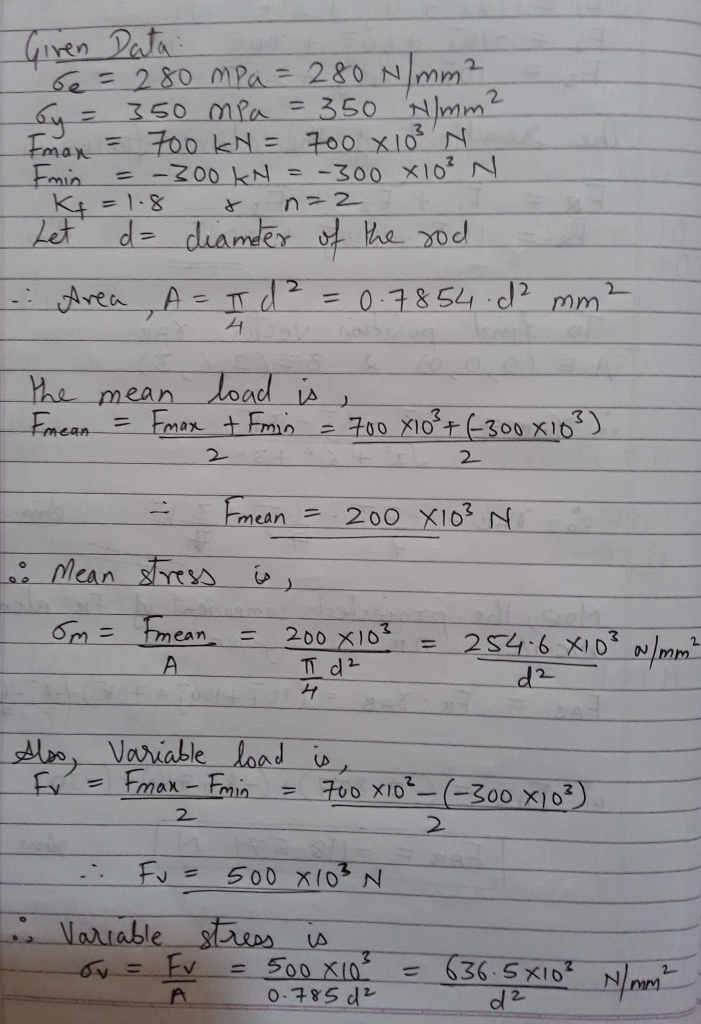 Given Data:
σe = 280 mPa = 280 N/mm²
σy = 350 mPa = 350 N/mm²
Fmax = 700 kN = 700 ×10³ N
Fmin = -300 kN = -300 ×10³ N
Kf = 1.8 & n=2
Let d= diamder of the rod
∴ Area, A = π/4 d² = 0.7854.d² mm²
the mean load is,
Fmean = (Fmax + Fmin)/2 = (700 ×10³+(-300 ×10³))/2
∴ Fmean = 200 ×10³ N
∴ Mean stress is,
σm = Fmean/A = (200 ×10³)/(π/4 d²) = (254.6 ×10³)/d² N/mm²
Also, Variable load is,
Fv = (Fmax - Fmin)/2 = (700 ×10³-(-300 ×10³))/2
∴ Fv = 500 ×10³ N
∴ Variable stress is
σv = Fv/A = (500 ×10³)/(0.785 d²) = (636.5 ×10³)/d² N/mm²